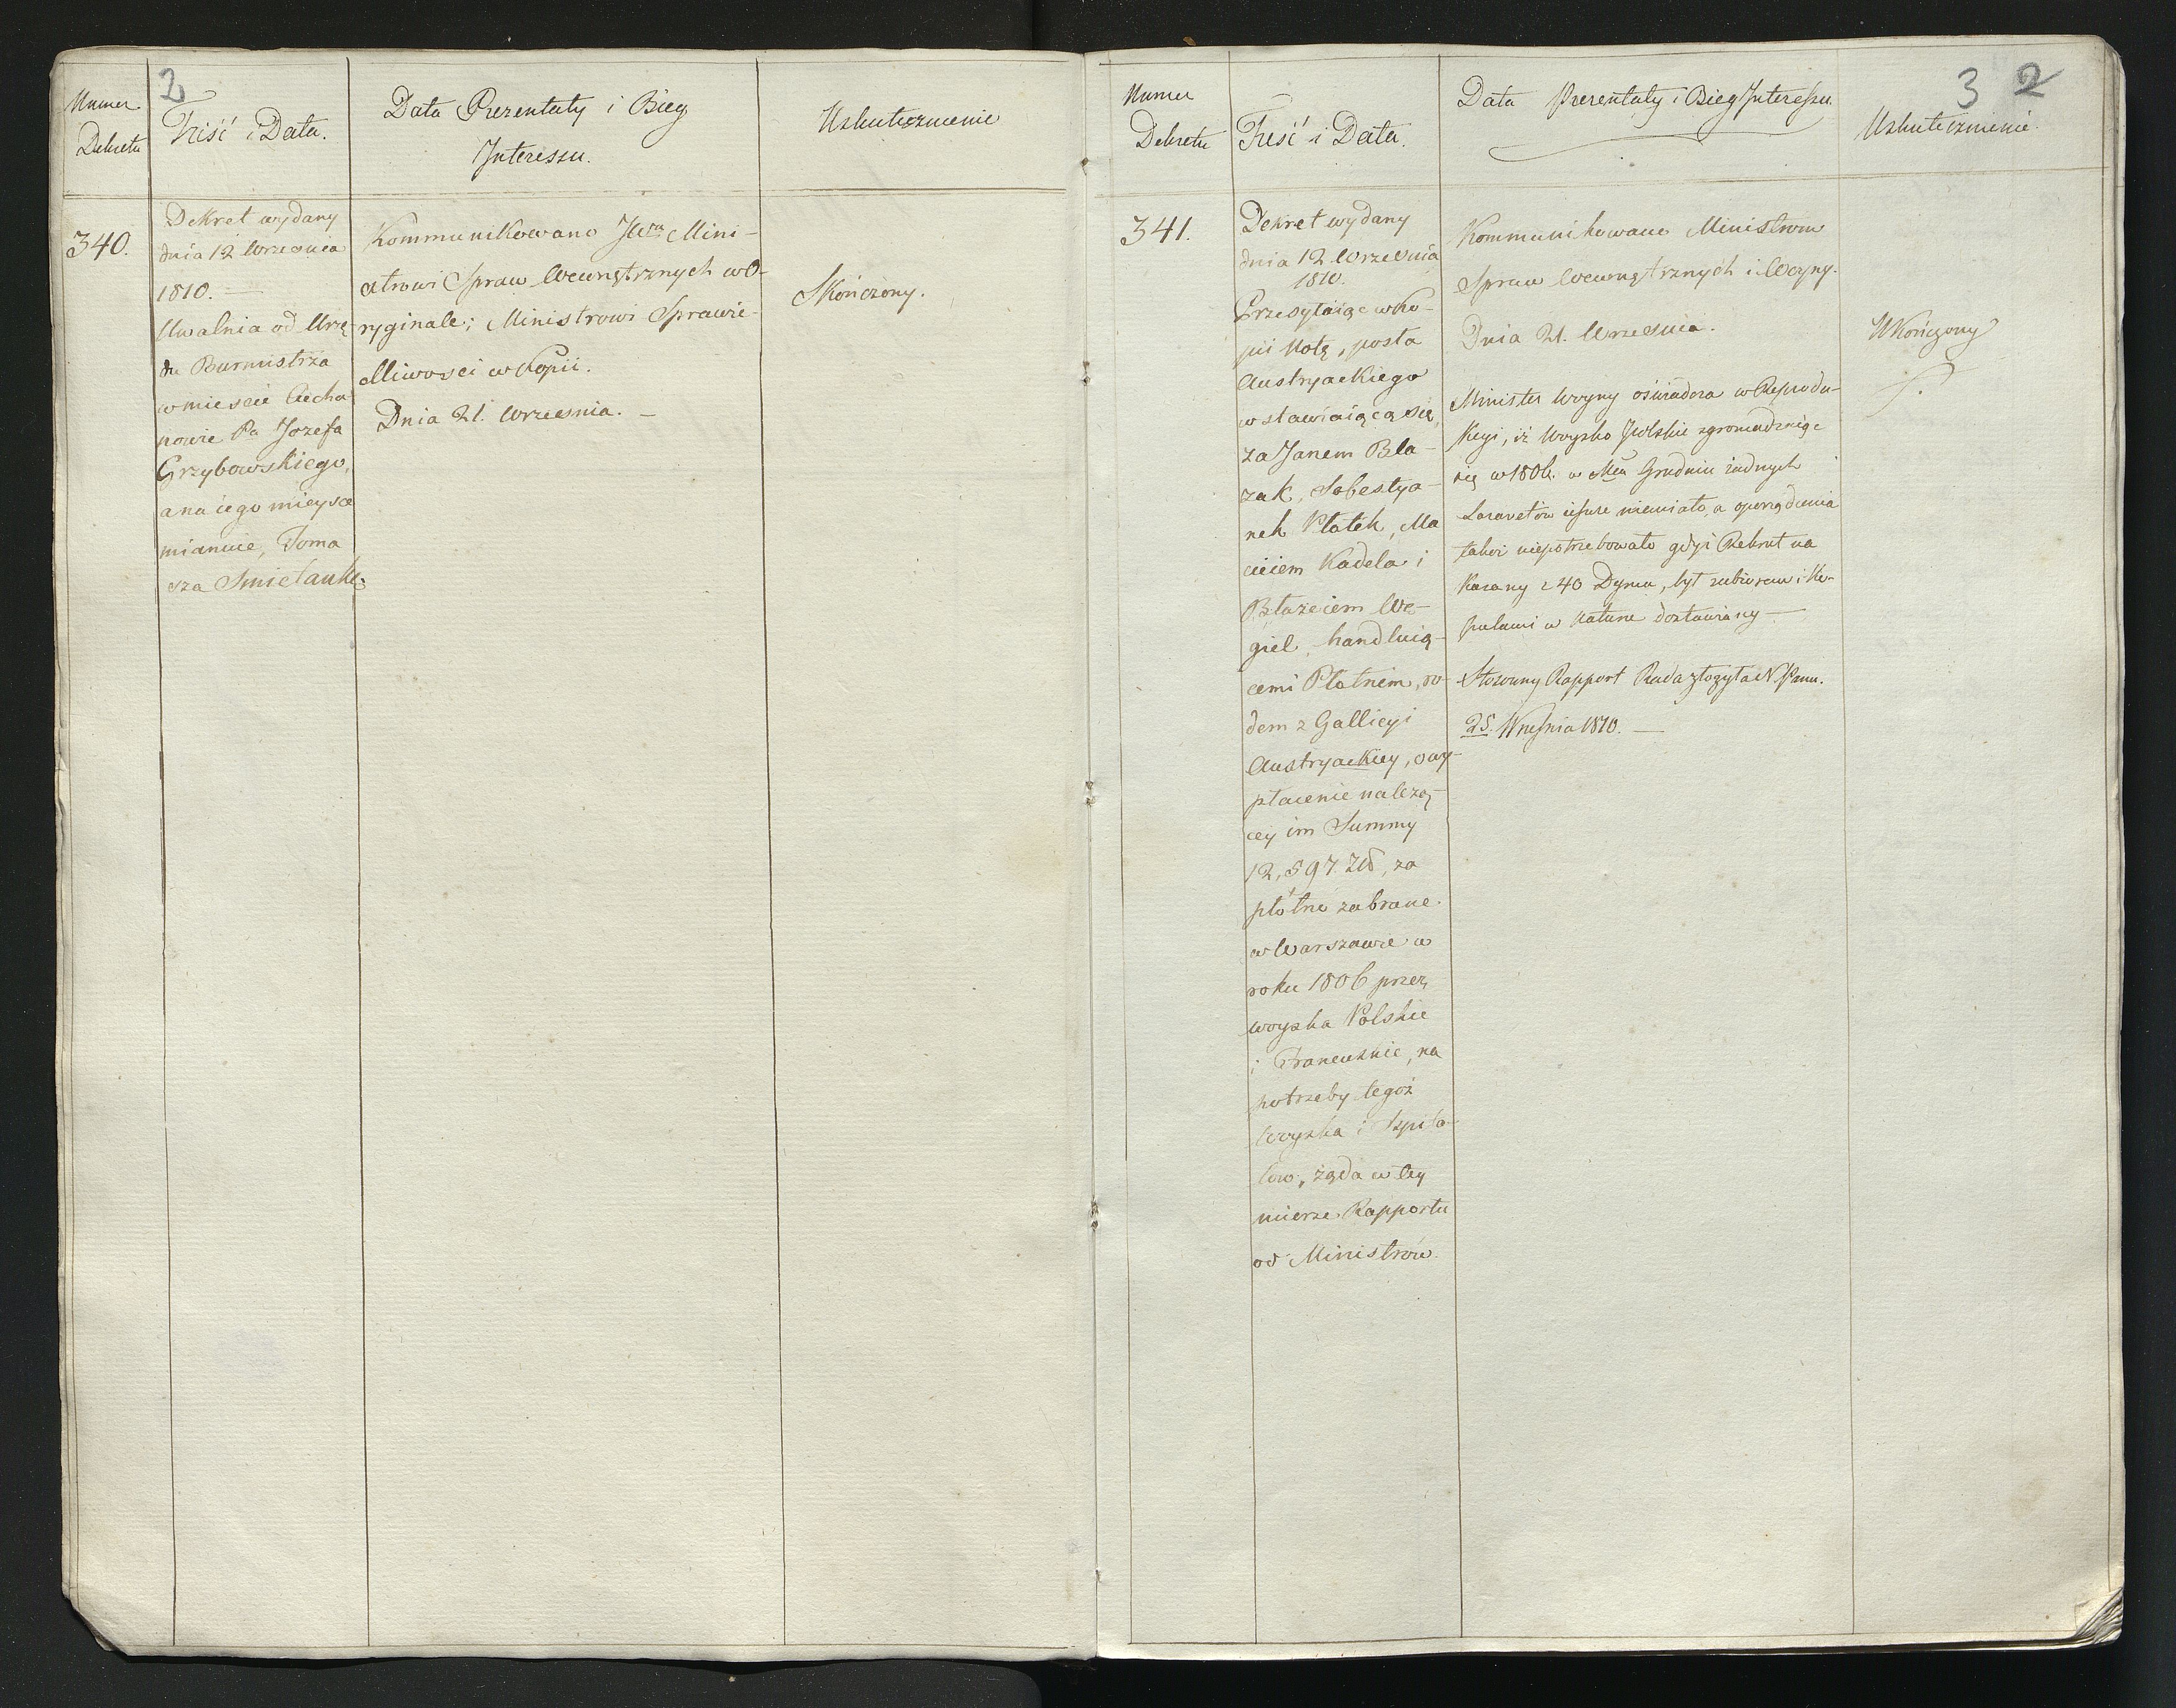 2
Numer
Dekretu
Treść i Data.
Data Prezentaty i Bieg
Interessu.
Uskutecznienie
340.
Dekret wydany
dnia 12 Wrzesnia
1810. —
Uwalnia od Urzę-
du Burmistrza
w miescie Ciecha
nowie Pa Jozefa
Grzybowskiego,
a na iego mieysce
mianuie, Toma
sza Smietankę.
Kommunikowano JWmu Mini-
strowi Spraw Wewnętrznych w O-
ryginale; Ministrowi Sprawie-
dliwosci w Kopii.
Dnia 21. Wrzesnia. —
Skończony.
3 2
Numer
Dekretu
Treść i Data.
Data Prezentaty i Bieg Interessu.
Uskutecznienie.
341.
Dekret wydany
dnia 12 Wrzesnia
1810.
Przesyłaiąc w Ko-
pii Notę, posła
Austryackiego
wstawiaiącą się,
za Janem Bla-
zak, Sobestya-
nek Płatek, Ma
cieiem Kadela i
Błażeiem We-
giel, handluią-
cemi Płotnem, ro-
dem z Gallicyi
Austryackiey, o wy-
płacenie należą-
cey im Summy
12,597. Złł, za
płótno zabrane
w Warszawie w
roku 1806 przez
woyska Polskie
i Francuskie, na
potrzeby tegoż
Woyska i Szpita-
low, żąda w tey
mierze Rapportu
od Ministrów.
Kommunikowano Ministrom
Spraw Wewnętrznych i Woyny.
Dnia 21. Wrzesnia.
Minister Woyny oświadcza w Reprodu-
kcyi, iż Woysko Polskie zgromadzaiąc
się w 1806. w Mcu Grudniu żadnych
Lazaretów ieszcze niemiało, a oporządzenia
takoż niepotrzebowało gdyż Rekrut na
kazany z 40 Dymu, był z ubiorem i Ko-
szulami w Naturze dostawiany —
Stosowny Rapport Rada złożyła N. Panu.
25. Wrzesnia 1810. —
Ukończony